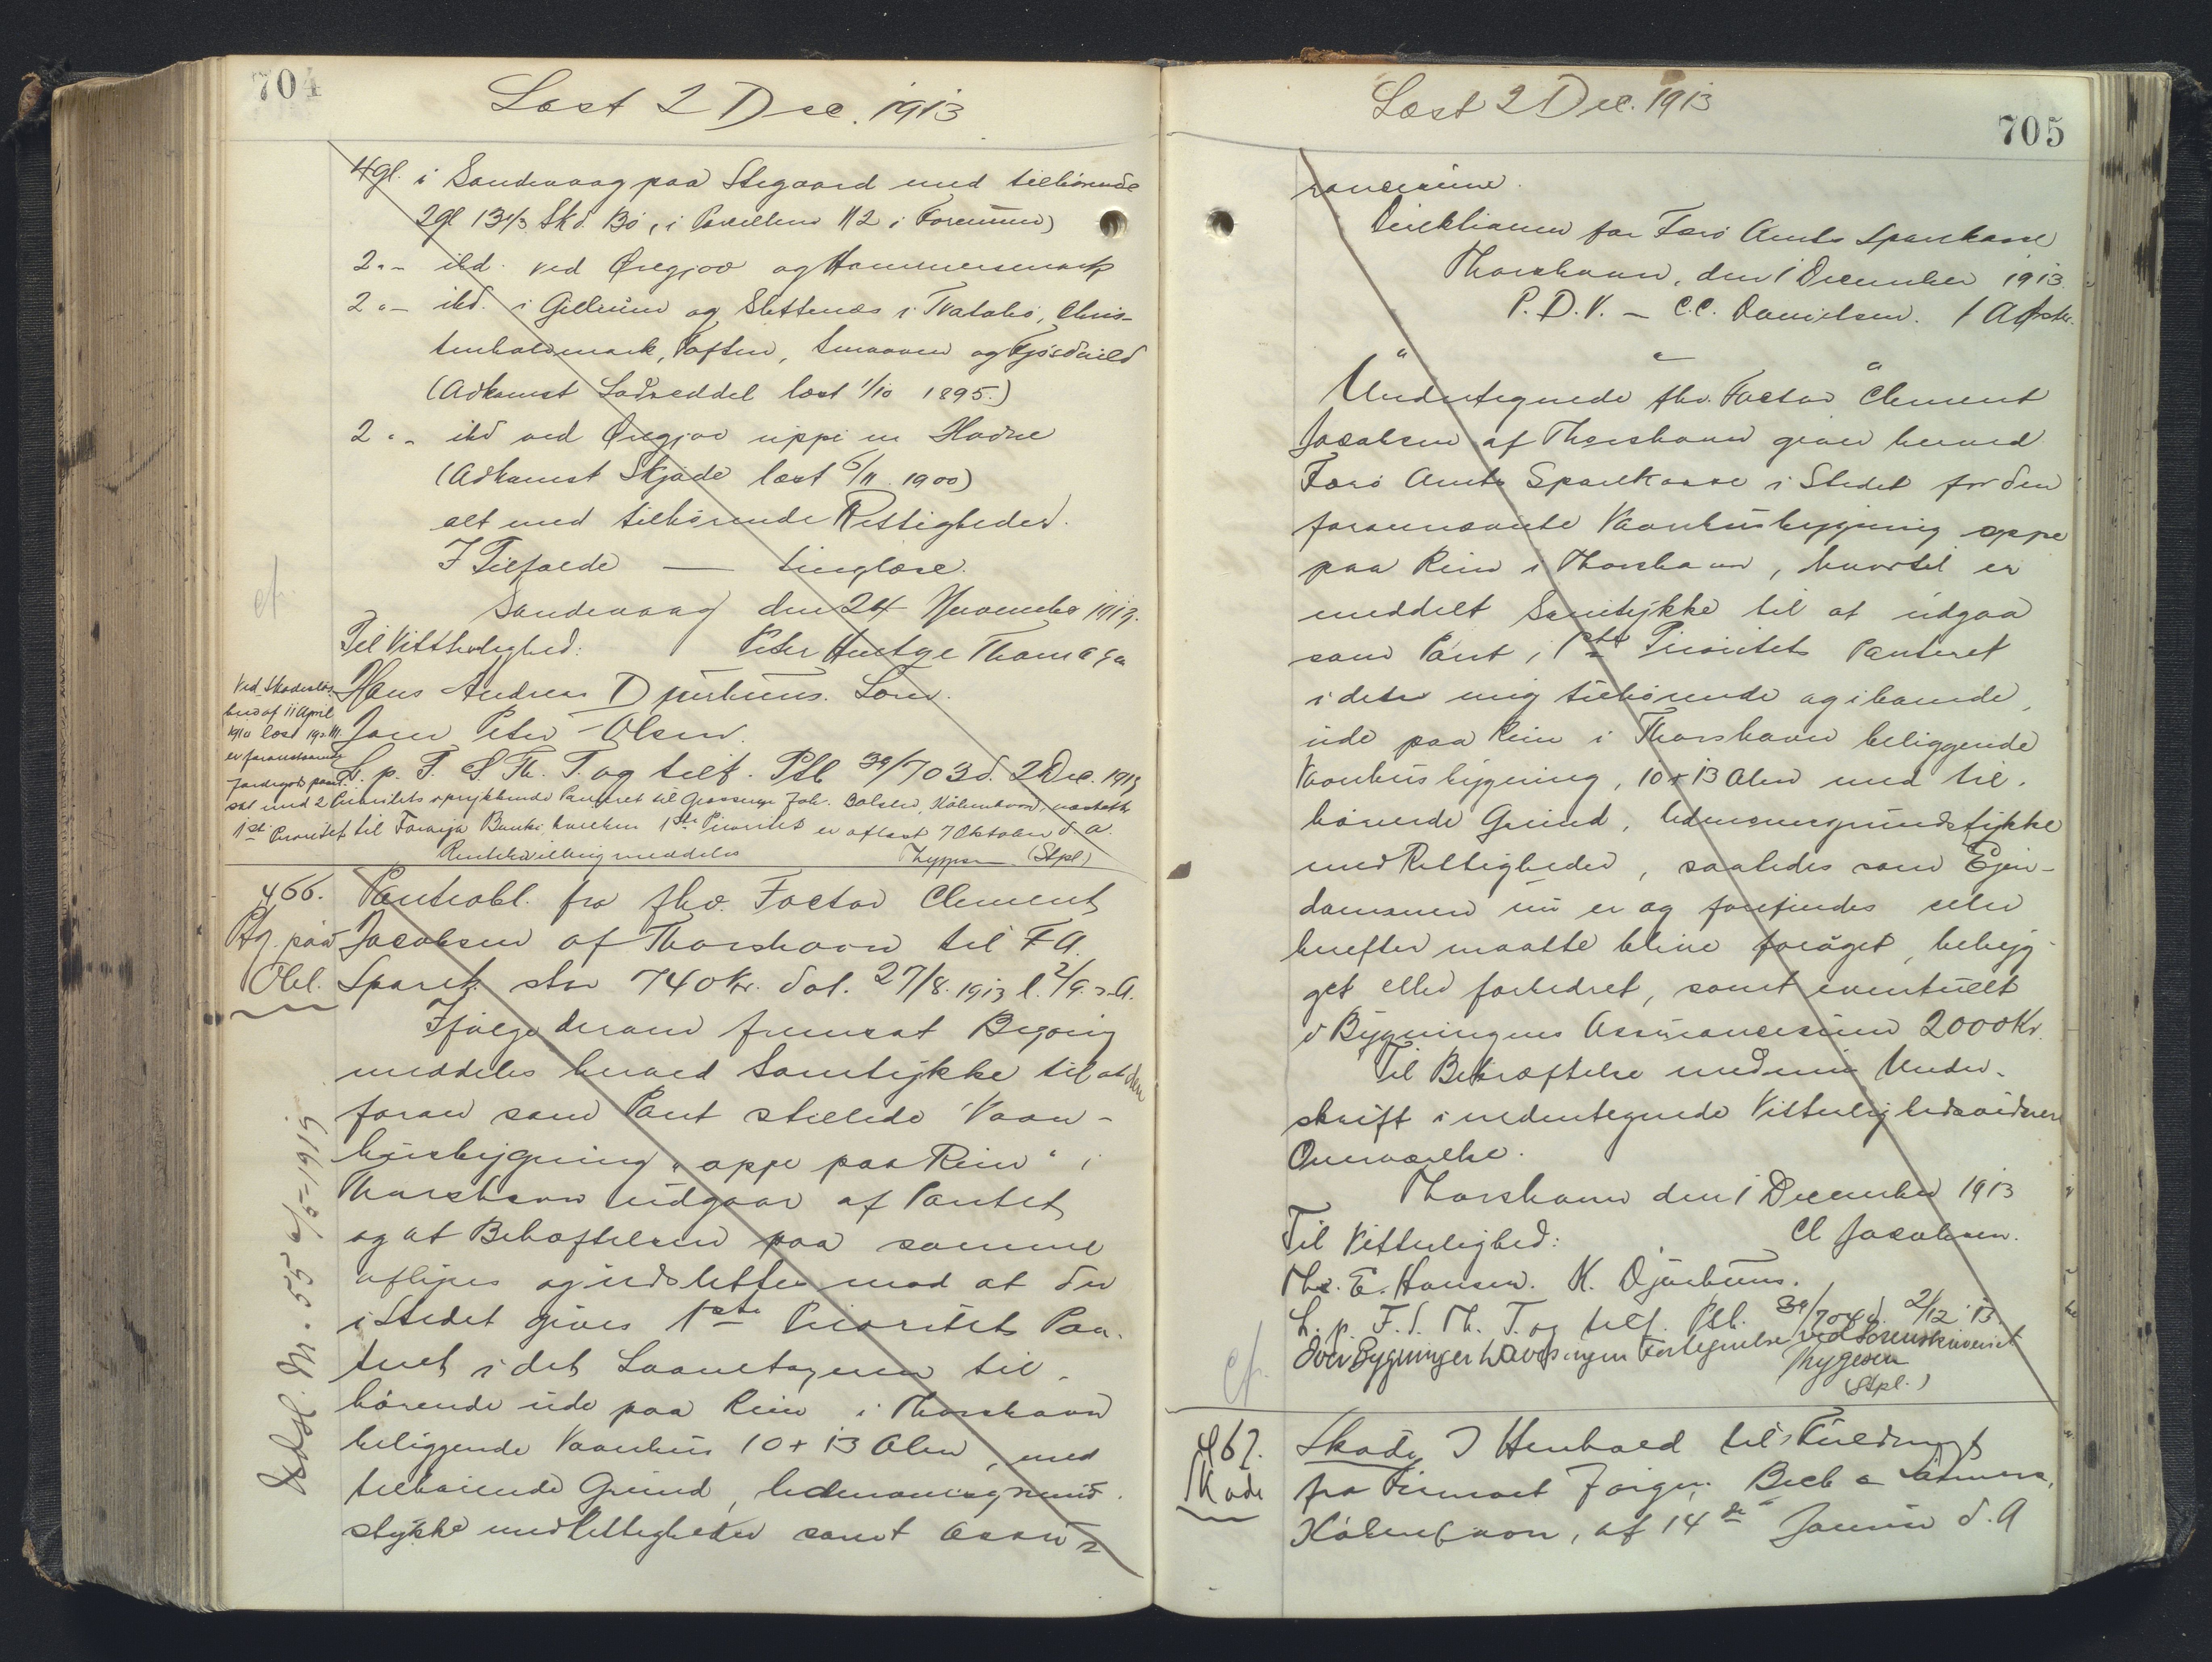 704
Læst 2 Dec. 1913
4 gl. i Sandevaag paa Stegaard med tilhörende
2 gl 13 1/3 Skd. Bö, i Parcellen 112 i
2 "- ibd. ved Öregjov og Hammersmark
2 "- ibd. i Gellrum og Slettenæs i Tvatabö, Chris-
tenholdsmark, Toften, og
(Adkomst Lodseddel læst 1/10 1895.)
2 "- ibd ved Öregjov uppi in Hadne
(Adkomst Skjöde læst 6/11 1900)
alt med tilhörende Rettigheder.
I Tilfælde — tinglæse.
Sandevaag den 24 November 1913.
Til Vitterlighed: Peter Hentze Thomasen
Hans Andreas Djurhuus. Lom.
Joen Peter Olsen.
L. p. F. S. Th. T. og tilf. Ptb 39/703 d. 2 Dec. 1913
Ved Skadeslös-
brev af 11 April
læst
er foranstaaende
Jordegods pant-
sat med 2 Prioritets oprykkende Panteret til Grosserer Joh. Balslev, Köbenhavn, næstefter
1ste Prioritet til Færøja Banki, hvilken 1ste Prioritet er aflæst 7 Oktober d. A.
Rentebevilling meddeles Thygesen (Stpl)
466.
Ptg. paa
Obl.
Panteobl. fra fhv. Factor Clement
Jacobsen af Thorshavn til F. A.
Sparek. stor 740 Kr. dat. 27/8. 1913 l. 2/9. s. A.
Ifölge derom fremsat Begæring
meddeles herved Samtykke til at den
foran som Pant stillede Vaan-
husbygning "oppe paa Rein" i
Thorshavn udgaar af Pantet
og at Behæftelsen paa samme
aflyses og udslettes mod at der
i Stedet gives 1ste Prioritets Pan-
teret i det Laanetageren til-
hörende ude paa Rein i Thorshavn
beliggende Vaanhus 10 + 13 Alen, med
tilhörende Grund,
stykke med Rettigheder samt Assu-
Udsl. M. 55 6/5-1915
705
Læst 2 Dec. 1913
rancesum.
Direktionen for Færö Amts Sparekasse
Thorshavn, den 1 December 1913.
P. D. V. — C. C. Danielsen. /
" " "
Undertegnede fhv. Factor Clement
Jacobsen af Thorshavn giver herved
Færö Amts Sparekasse i Stedet for den
forannævnte Vaanhusbygning oppe
paa Rein i Thorshavn, hvortil er
meddelt Samtykke til at udgaa
som Pant, 1ste Prioritets Panteret
i den mig tilhörende og iboende,
ude paa Rein i Thorshavn beliggende
Vaanhusbygning, 10 + 13 Alen med til-
hörende Grund,
med Rettigheder, saaledes som Ejen-
dommen nu er og forefindes eller
herefter maatte blive foröget, bebyg-
get eller forbedret, samt eventuelt
i Bygningens Assurancesum 2000 Kr.
Til Bekræftelse med min Under-
skrift i nedentegnede Vitterlighedsvidners
Overværelse.
Thorshavn den 1 December 1913
Til Vitterlighed: Cl Jacobsen.
Thr. E. Hansen. K. Djurhuus.
L. p. F. S. Th. T. og tilf. Ptb. 39/704 d. 2/12 13.
Over Bygninger haves ingen Fortegnelse ved Sorenskriveriet
Thygesen
(Stpl.)
cf.
467.
Skøde
Skøde I Henhold til Fuldmagt
fra Firmaet Jörgen Bech & Sönner,
Köbenhavn, af 14de Januar d. A